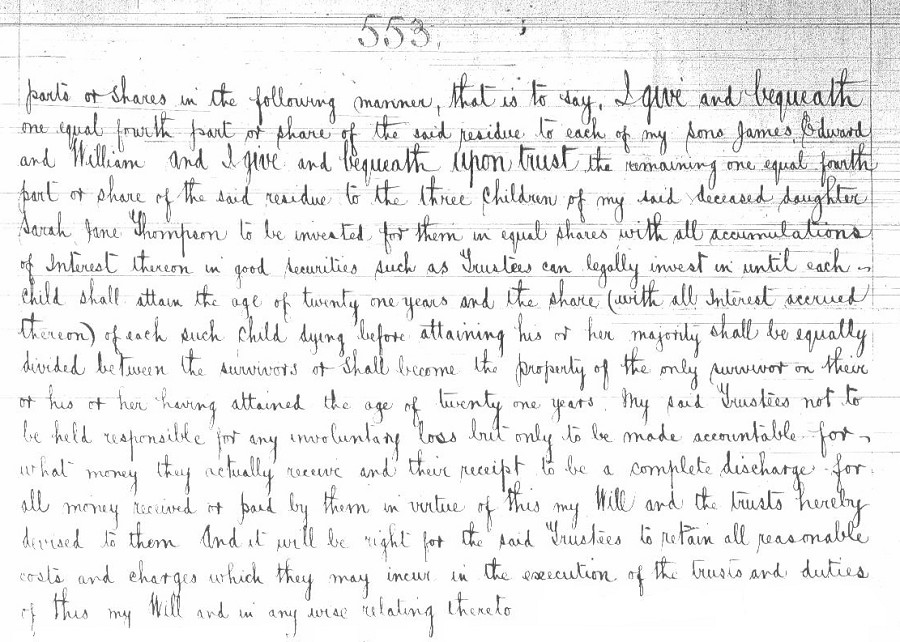 553.
parts or shares in the following manner, that is to say, I give and bequeath
one equal fourth part or share of the said residue to each of my sons James, Edward
and William and I give and bequeath upon trust the remaining one equal fourth
part or share of the said residue to the three Children of my said deceased daughter
Sarah Jane Thompson to be invested for them in equal shares with all accumulations
of Interest thereon in good securities such as Trustees can legally invest in until each
Child shall attain the age of twenty one years and the share (with all Interest accrued
thereon) of each such Child dying before attaining his or her majority shall be equally
divided between the survivors or shall become the property of the only survivor on their
or his or her having attained the age of twenty one years. My said Trustees not to
be held responsible for any involuntary loss but only to be made accountable for
what money they actually receive and their receipt to be a complete discharge for
all money received or paid by them in virtue of this my Will and the trusts hereby
devised to them And it will be right for the said Trustees to retain all reasonable
costs and charges which they may incur in the execution of the trusts and duties
of this my Will and in any wise relating thereto